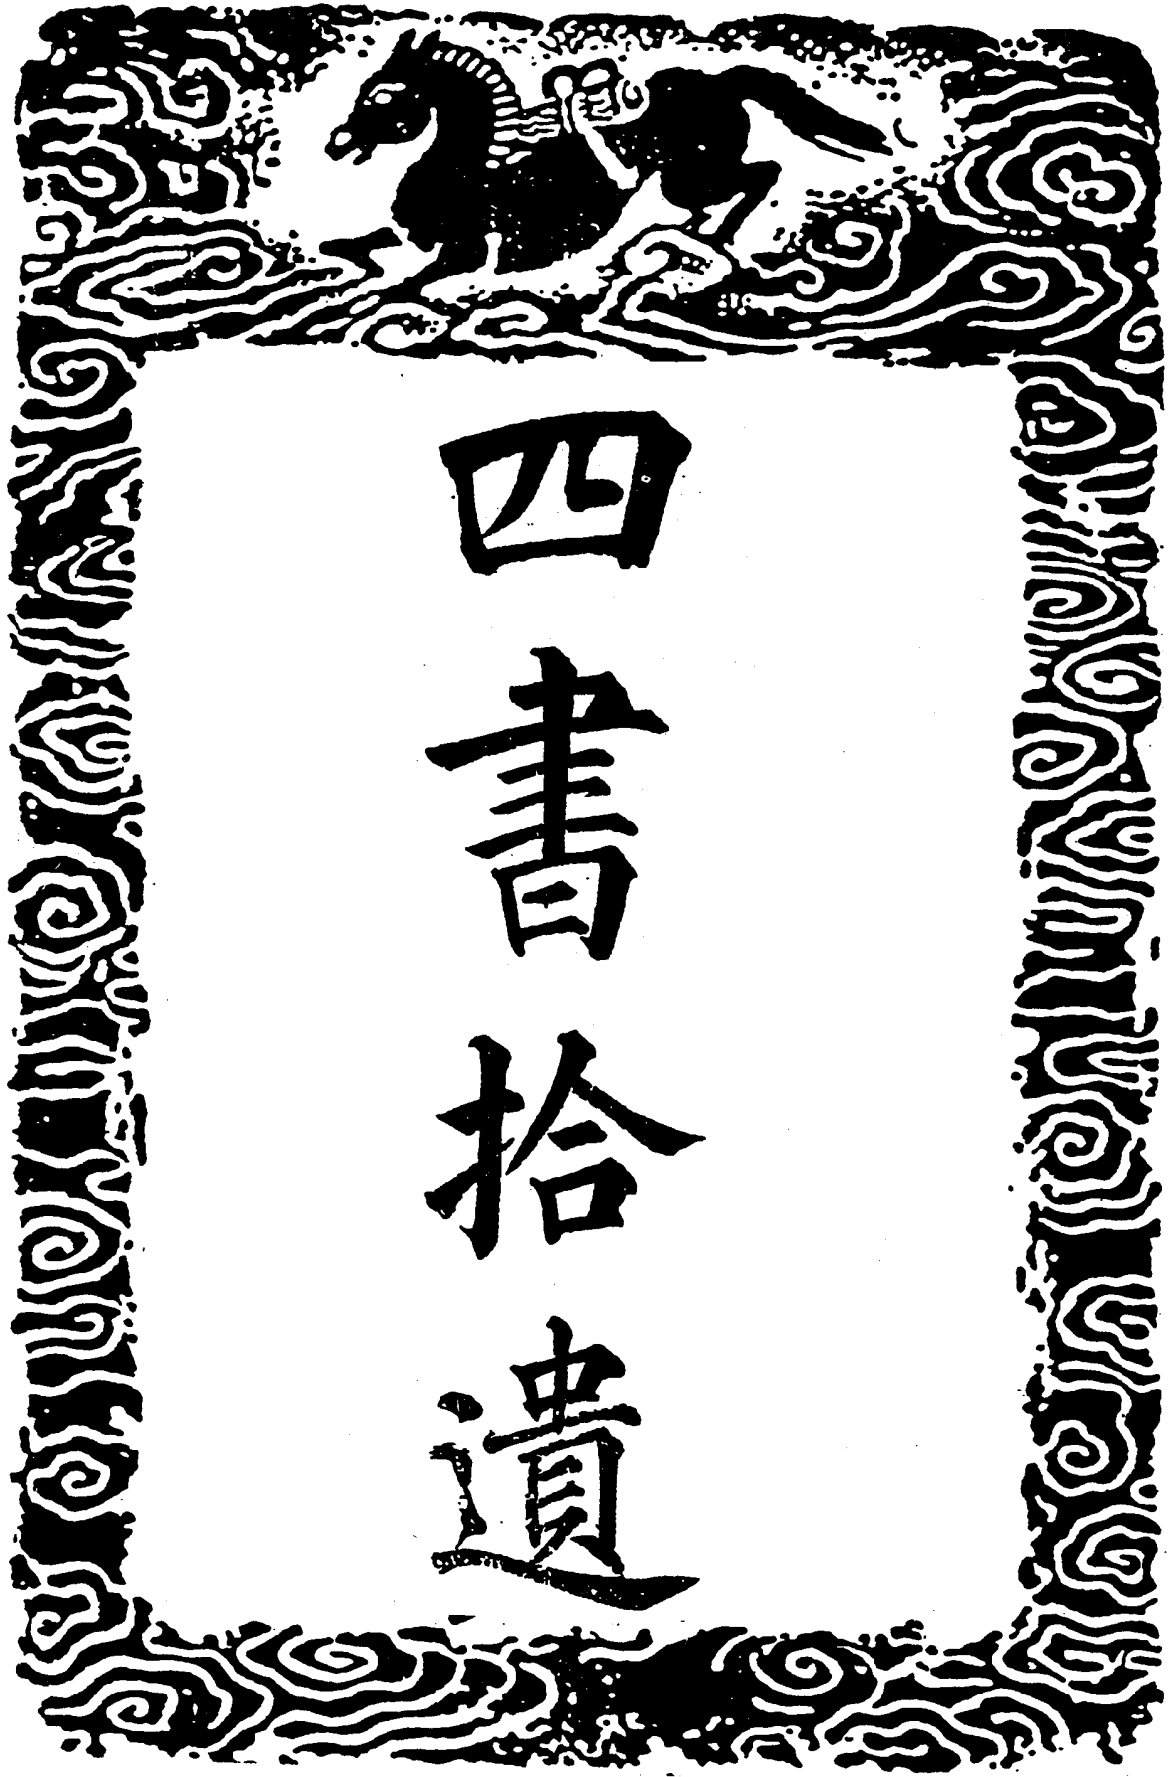 四書拾遺